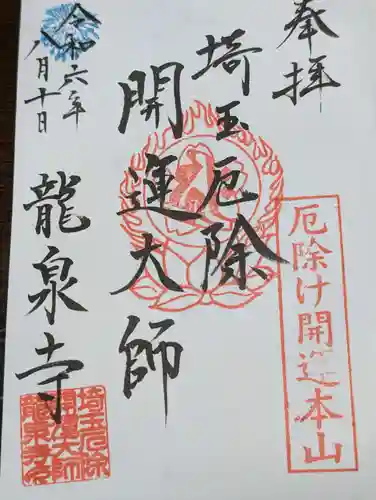 奉拝
厄除け開運本山
埼玉厄除
開運大師
令和六年
八月十日
龍泉寺
埼玉厄除
開運大師
龍泉寺